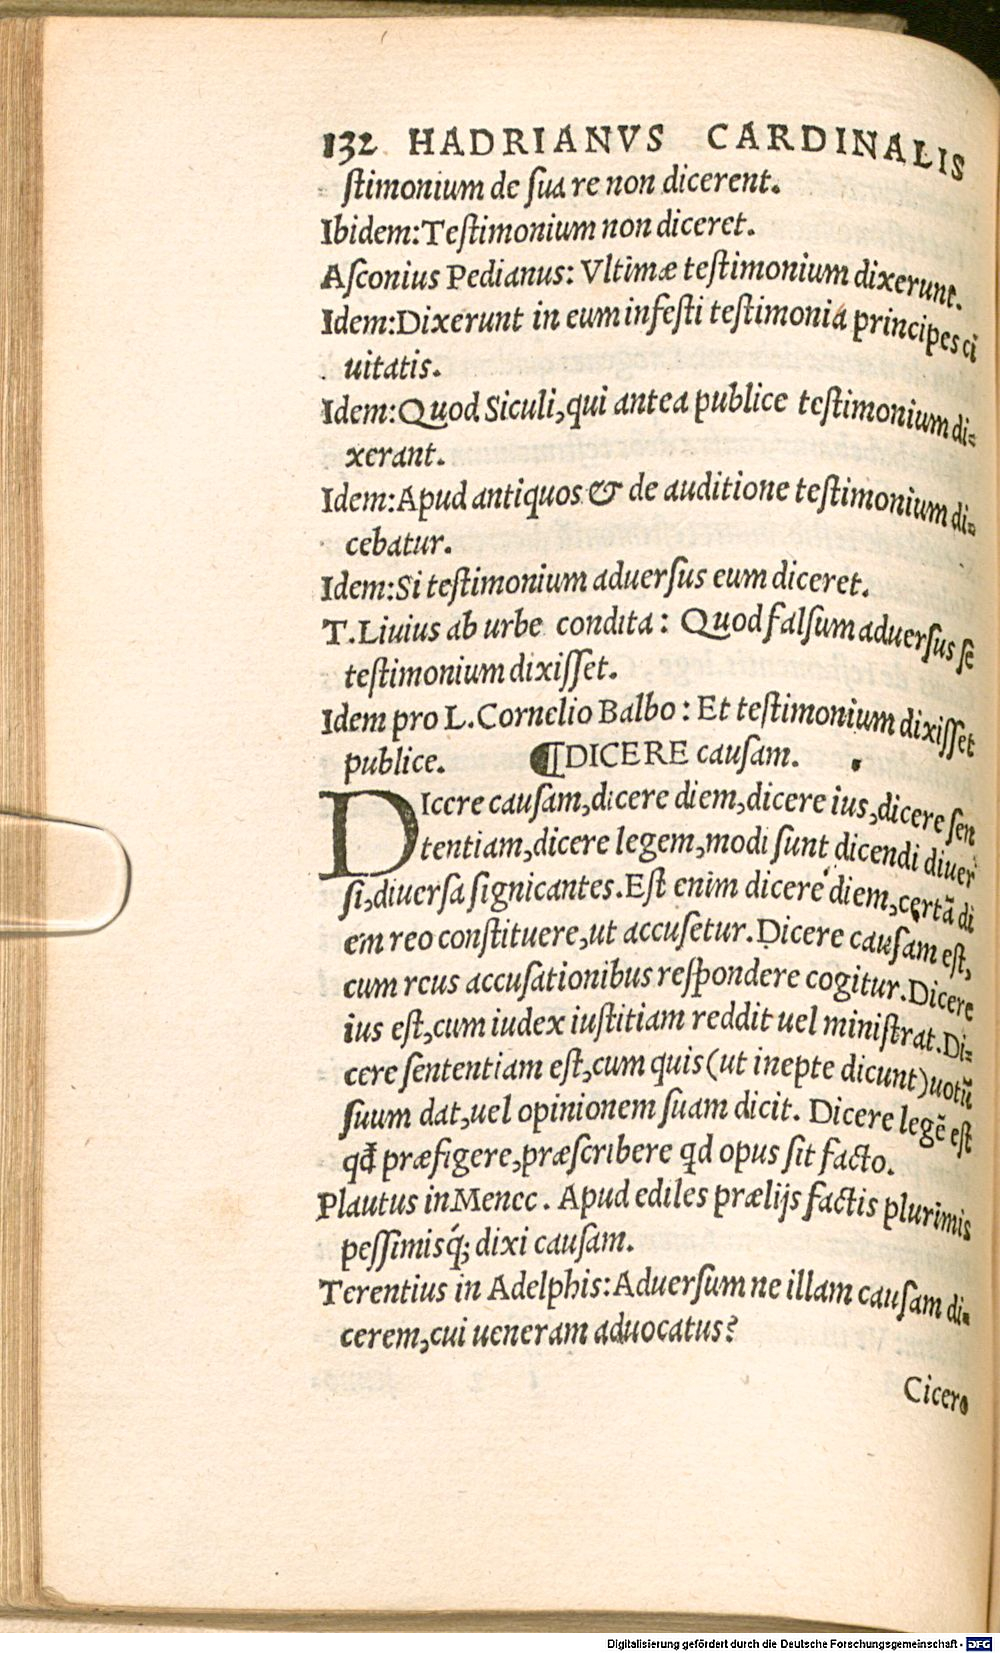 132 HADRIANVS CARDINALIS
ſtimonium de ſua re non dicerent.
Ibidem:Teſtimonium non diceret.
Aſconius Pedianus: Vltimæ teſtimonium dixerunt.
Idem:Dixerunt in eum infeſti teſtimonia principes ci
uitatis.
Idem:Quod Siculi,qui antea publice teſtimonium di-
xerant.
Idem:Apud antiquos & de auditione teſtimonium di-
cebatur.
Idem:Si teſtimonium aduerſus eum diceret.
T.Liuius ab urbe condita: Quod falſum aduerſus ſē
teſtimonium dixiſſet.
Idem pro L.Cornelio Balbo: Et teſtimonium dixiſſet
publice. ¶DICERE cauſam.
DIcere cauſam,dicere diem,dicere ius,dicere ſen
tentiam,dicere legem,modi ſunt dicendi diuer
ſi,diuerſa ſignicantes.Eſt enim dicere diem,certā di
em reo conſtituere,ut accuſetur.Dicere cauſam eſt,
cum reus accuſationibus reſpondere cogitur.Dicere
ius eſt,cum iudex iuſtitiam reddit uel miniſtrat.Di-
cere ſententiam eſt,cum quis(ut inepte dicunt)uotū
ſuum dat,uel opinionem ſuam dicit. Dicere legē eſt
qđ præfigere,præſcribere qd opus ſit facto.
Plautus in Menec. Apud ediles prælijs factis plurimis
peſſimisq́; dixi cauſam.
Terentius in Adelphis:Aduerſum ne illam cauſam di-
cerem,cui ueneram aduocatus?
Cicero
Digitalisierung gefördert durch die Deutsche Forschungsgemeinschaft - DFG